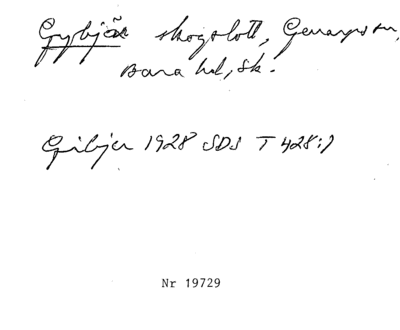 Gybjär skogslott, Genarps sn,
Bara hd, Sk.
Gibjer 1928 SDS T 428:1
Nr 19729